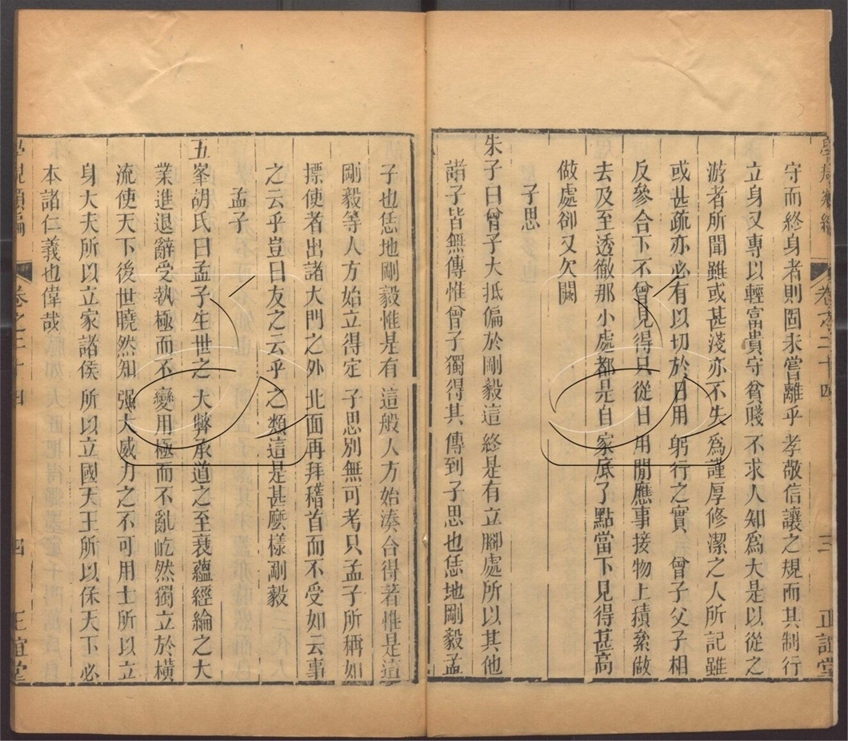 守而終身者則固未嘗離乎孝敬信讓之規而其制行
立身又專以輕富貴守貧賤不求人知爲大是以從之
游者所聞雖或甚淺亦不失爲謹厚修潔之人所記雖
或甚疏亦必有以切於日用躬行之實　曾子父子相
反參合下不曾見得只從日用閒應事接物上積絫做
去及至透徹那小處都是自家底了點當下見得甚高
做處卻又欠闕
子思
朱子曰曾子大抵偏於剛毅這終是有立腳處所以其他
諸子皆無傳惟曾子獨得其傳到子思也恁地剛毅孟
正誼堂
卷之二十四
三
子也恁地剛毅惟是有這般人方始湊合得著惟是這
剛毅等人方始立得定　子思別無可考只孟子所稱如
摽使者出諸大門之外北面再拜稽首而不受如云事
之云乎豈曰友之云乎之類這是甚麽樣剛毅
孟子
五峯胡氏曰孟子生世之大弊承道之至衰蘊經綸之大
業進退辭受執極而不變用極而不亂屹然獨立於橫
流使天下後世曉然知强大威力之不可用士所以立
身大夫所以立家諸侯所以立國天王所以保天下必
本諸仁義也偉哉
卷之二十四
四
正誼堂